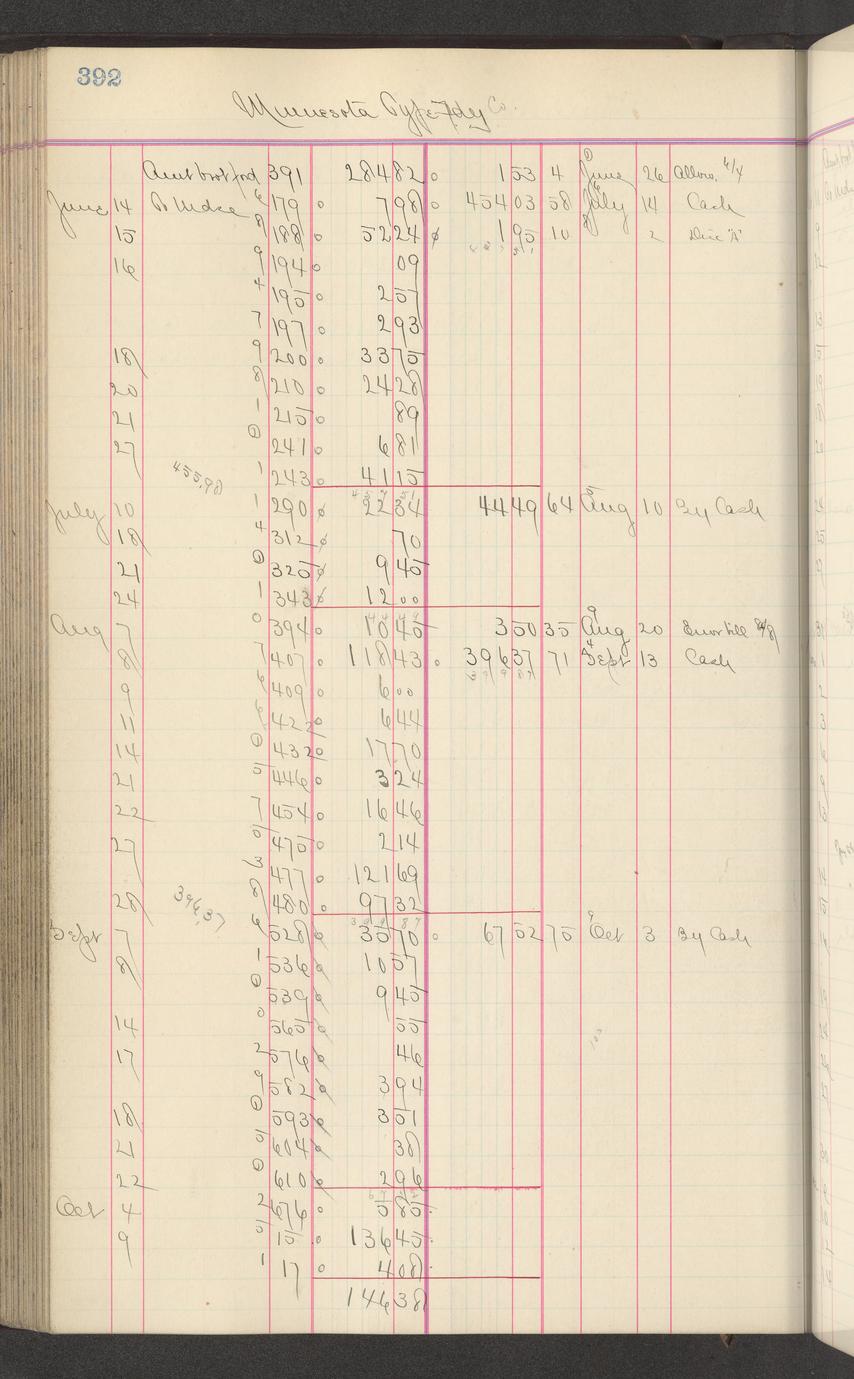 392
Minnesota Type Fdy Co.
Amt brot ford 391 284 82 o 1 53 4 June 26 Allow. 4/4
June 14 To Mdse 6 179 o 7 98 o 454 03 58 July 14 Cash
15 8 188 o 52 24 ø 1 95 10 2 Disc "A"
16 9 194 o 09
4 195 o 2 57
7 197 o 2 93
18 9 200 o 33 75
20 8 210 o 24 28
21 1 215 o 89
27 0 241 o 6 81
455.98 1 243 o 41 15
July 10 1 290 ø 22 34 44 49 64 Aug 10 By Cash
18 4 312 ø 70
21 0 325 ø 9 45
24 1 343 ø 12 00
Aug 7 0 394 o 10 45 3 50 35 Aug 20 Error bill 8/8
8 7 407 o 118 43 o 396 37 71 Sept 13 Cash
9 6 409 o 6 00
11 6 422 o 6 44
14 0 432 o 17 70
21 5 446 o 3 24
22 7 454 o 16 46
27 5 475 o 2 14
3 477 o 121 69
28 396.37 8 480 o 97 32
Sept 7 6 528 ø 35 70 o 67 52 75 Oct 3 By Cash
8 1 536 ø 10 57
0 539 ø 9 45
14 0 565 ø 55
17 2 576 ø 46
9 582 ø 3 94
18 0 593 ø 3 51
21 5 604 ø 38
22 0 610 ø 2 96
Oct 4 2 676 o 5 85
9 5 15 o 136 45
1 17 o 4 08
146 38